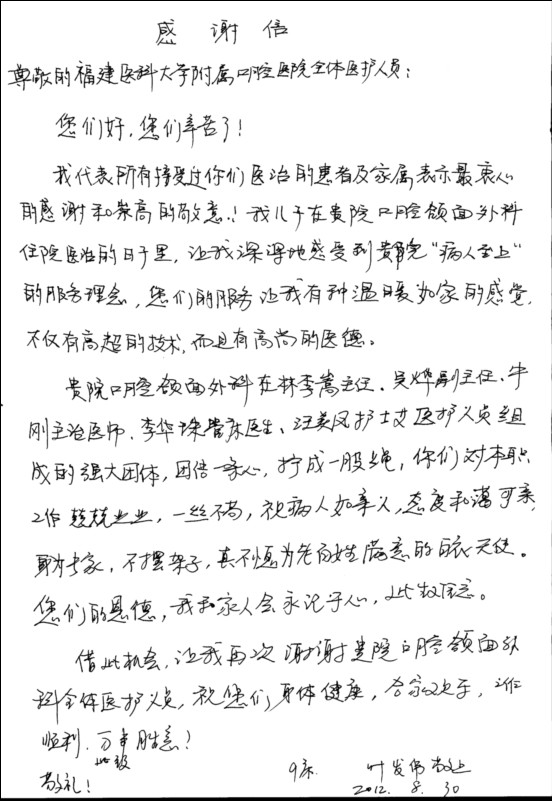 感谢信
尊敬的福建医科大学附属口腔医院全体医护人员：
您们好，您们辛苦了！
我代表所有接受过你们医治的患者及家属表示最衷心
的感谢和崇高的敬意！我儿子在贵院口腔颌面外科
住院医治的日子里，让我深深地感受到贵院“病人至上”
的服务理念，您们的服务让我有种温暖如家的感觉，
不仅有高超的技术，而且有高尚的医德。
贵院口腔颌面外科在林李嵩主任、吴烨副主任、牛
刚主治医师、李华 管床医生、汪美凤护士 医护人员组
成的强大团体，团结一条心，拧成一股绳，你们对本职
工作兢兢业业，一丝不苟，视病人如亲人，态度和蔼可亲，
不摆架子，真不愧为老百姓满意的白衣天使。
您们的恩德，我和家人会永记于心，
借此机会，让我再次谢谢贵院口腔颌面外
科全体医护人员，祝您们身体健康，合家欢乐，工作
顺利，万事胜意！
此致
敬礼！
9床 叶发伟敬上
2012. 8. 30